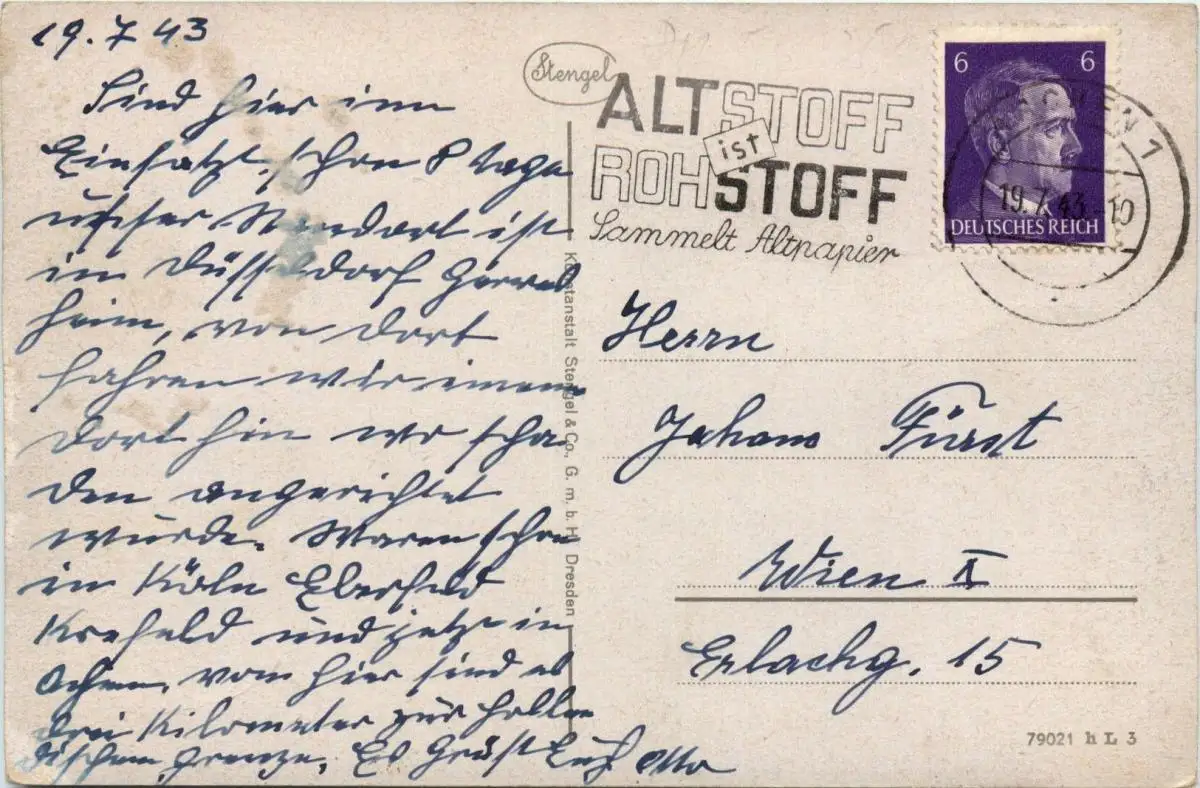 19.7 43
Sind hier im
Einsatz, schon 8 Tage
unser Standort ist
in Düsseldorf Gerres
heim, von dort
fahren wir immer
dorthin wo scha
den angerichtet
wurde. Waren schon
in Köln Eberfeld
Krefeld und jetzt in
Achen, von hier sind es
drei Kilometer zur hollen
dischen grenze. Es Grüst Euch Otto
Stengel
ALTSTOFF
ist
ROHSTOFF
Sammelt Altpapier
6 6
DEUTSCHES REICH
AACHEN 1
19.7.43. 10
Kunstanstalt Stengel & Co., G. m. b. H., Dresden
Herrn
Johann Fürst
Wien X
Erlachg. 15
79021 h L 3